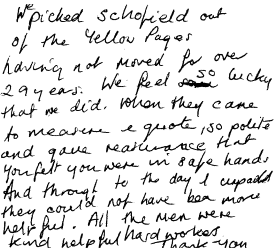 We picked Schofield out
of the Yellow Pages
having not moved for over
29 years. We feel so lucky
that we did. When they came
to measure & quote, so polite
and gave reassurance that
you felt you were in safe hands
And through to the day I unpacked
they could not have been more
helpful. All the men were
kind helpful hard workers
Thank you